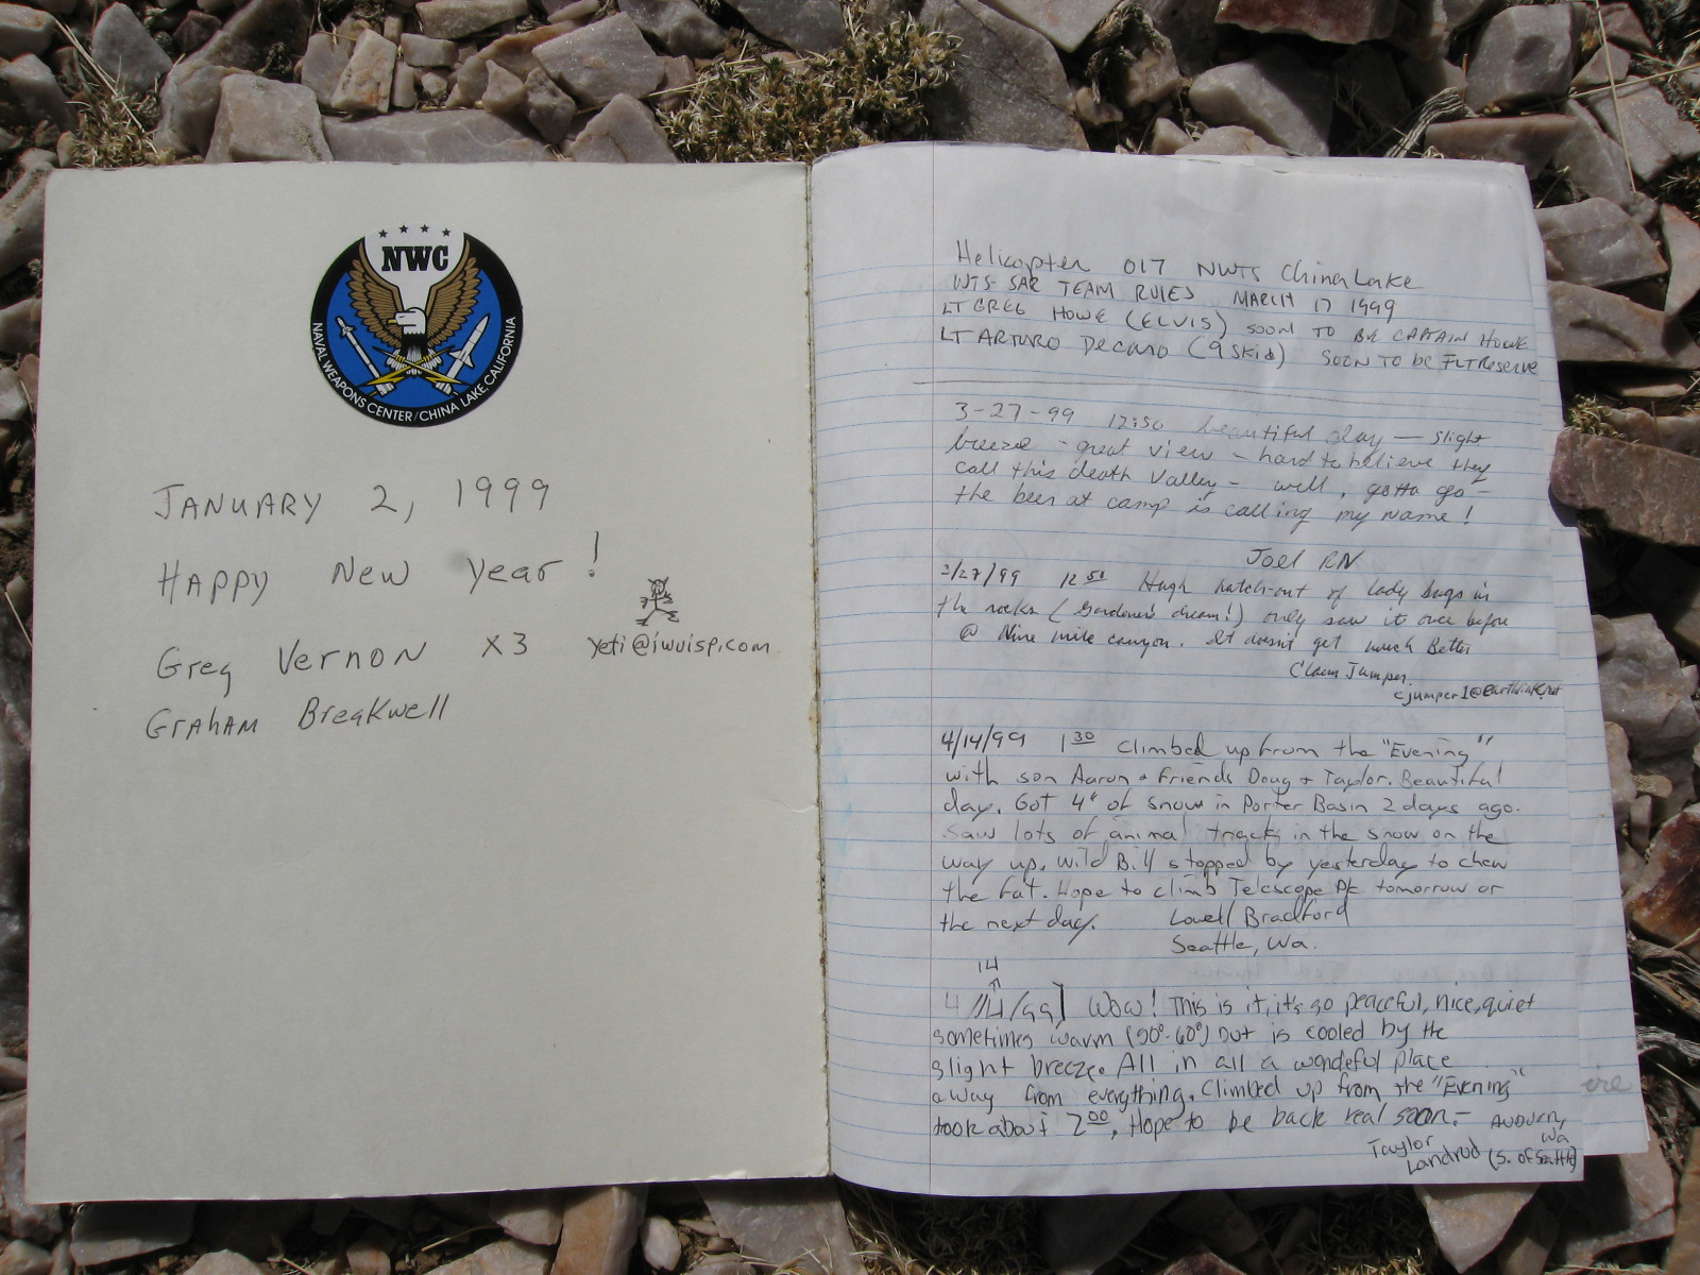 NWC
NAVAL WEAPONS CENTER/CHINA LAKE, CALIFORNIA
JANUARY 2, 1999
HAPPY New Year!
Greg Vernon X3 yeti@iwvisp.com
GRAHAM Breakwell
Helicopter 017 NWTS China Lake
WTS SAR TEAM RULES MARCH 17 1999
LT GREG HOWE (ELVIS) SOON TO BE CAPTAIN HOWE
LT ARTURO Decaro (9 Skid) SOON TO be FLT Reserve
3-27-99 12:50 beautiful day — slight
breeze - great view - hard to believe they
call this death Valley - well, gotta go -
the beer at camp is calling my name!
Joel RN
3/27/99 12 50 Hugh hatch-out of lady bugs in
the rocks (Gardener's dream!) only saw it once before
@ Nine mile canyon. It doesn't get much Better
Claim Jumper
cjumper1@earthlink.net
4/14/99 1 30 Climbed up from the "Evening"
with son Aaron + Friends Doug + Taylor. Beautiful
day. Got 4" of snow in Porter Basin 2 days ago.
Saw lots of animal tracks in the snow on the
way up. Wild Bill stopped by yesterday to chew
the fat. Hope to climb Telescope Pk tomorrow or
the next day. Lowell Bradford
Seattle, Wa.
14
4/14/99] Wow! This is it, it's so peaceful, nice, quiet
sometimes warm (50°-60°) but is cooled by the
slight breeze. All in all a wondeful place
away from everything. Climbed up from the "Evening"
took about 2 00, Hope to be back real soon. - Auburn,
Wa
Taylor
Landrud (S. of Seattle)